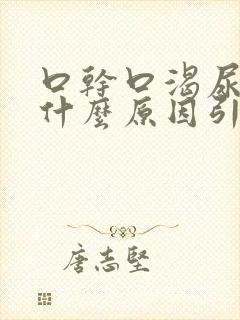 口幹口渴尿
什麼原因引
唐志堅